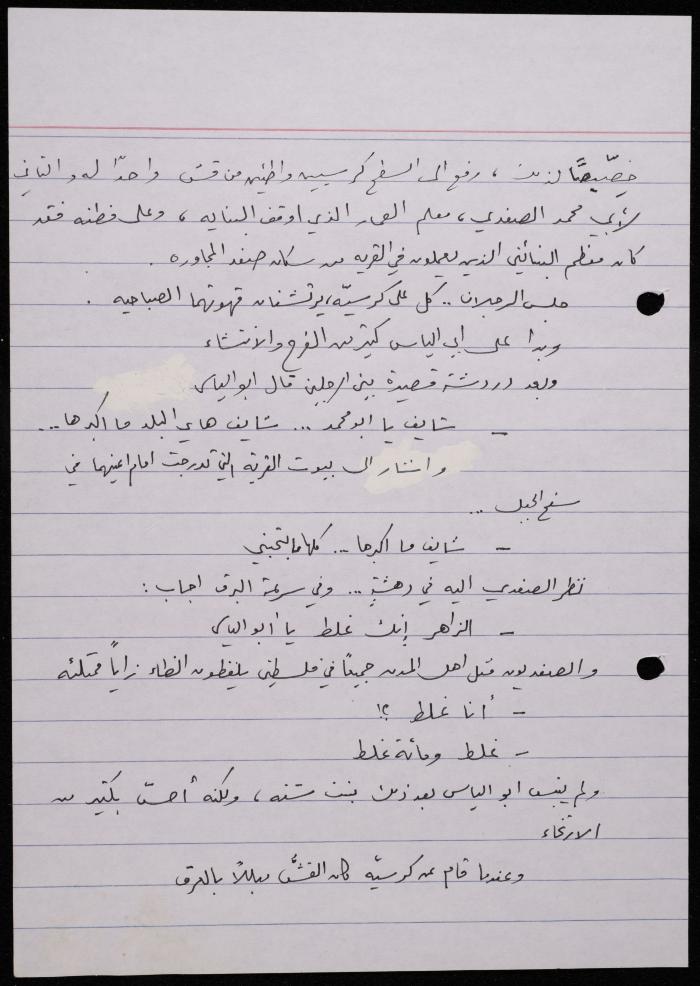 خصّيصًا لذلك ، رفع الى السطح كرسيين واطئين من قش واحدًا له والثاني
لأبي محمد الصفدي ، معلم العمار الذي اوقف البنايه ، وعلى فطنه فقد
كان معظم البنائين الذين يعملون في القريه من سكان صفد المجاوره .
جلس الرجلان .. كل على كرسيّه ، يرتشفان قهوتهما الصباحيه .
وبدا على ابي الياس كثير من الفرح والانتشاء
وبعد دردشة قصيرة بين الرجلين قال ابو الياس
– شايف يا ابو محمد ... شايف هاي البلد ما اكبرها ...
واشار الى بيوت القريه التي تدرجت امام اعينهما في
سفح الجبل ...
– شايف ما اكبرها ... كلها ما بتحبني
نظر الصفدي اليه في دهشةٍ ... وفي سرعة البرق اجاب :
– الزاهر إنك غلط يا أبو الياس
والصفديون مثل اهل المدن جميعًا في فلسطين يلفظون الظاء زايًا مختلئه
– أنا غلط ؟!
– غلط ومائة غلط
ولم ينبس ابو الياس بعد ذلك ببنت شفه ، ولكنه أحسّ بكثير من
الارتخاء
وعندما قام عن كرسيّه كان القشُّ مبللاً بالعرق